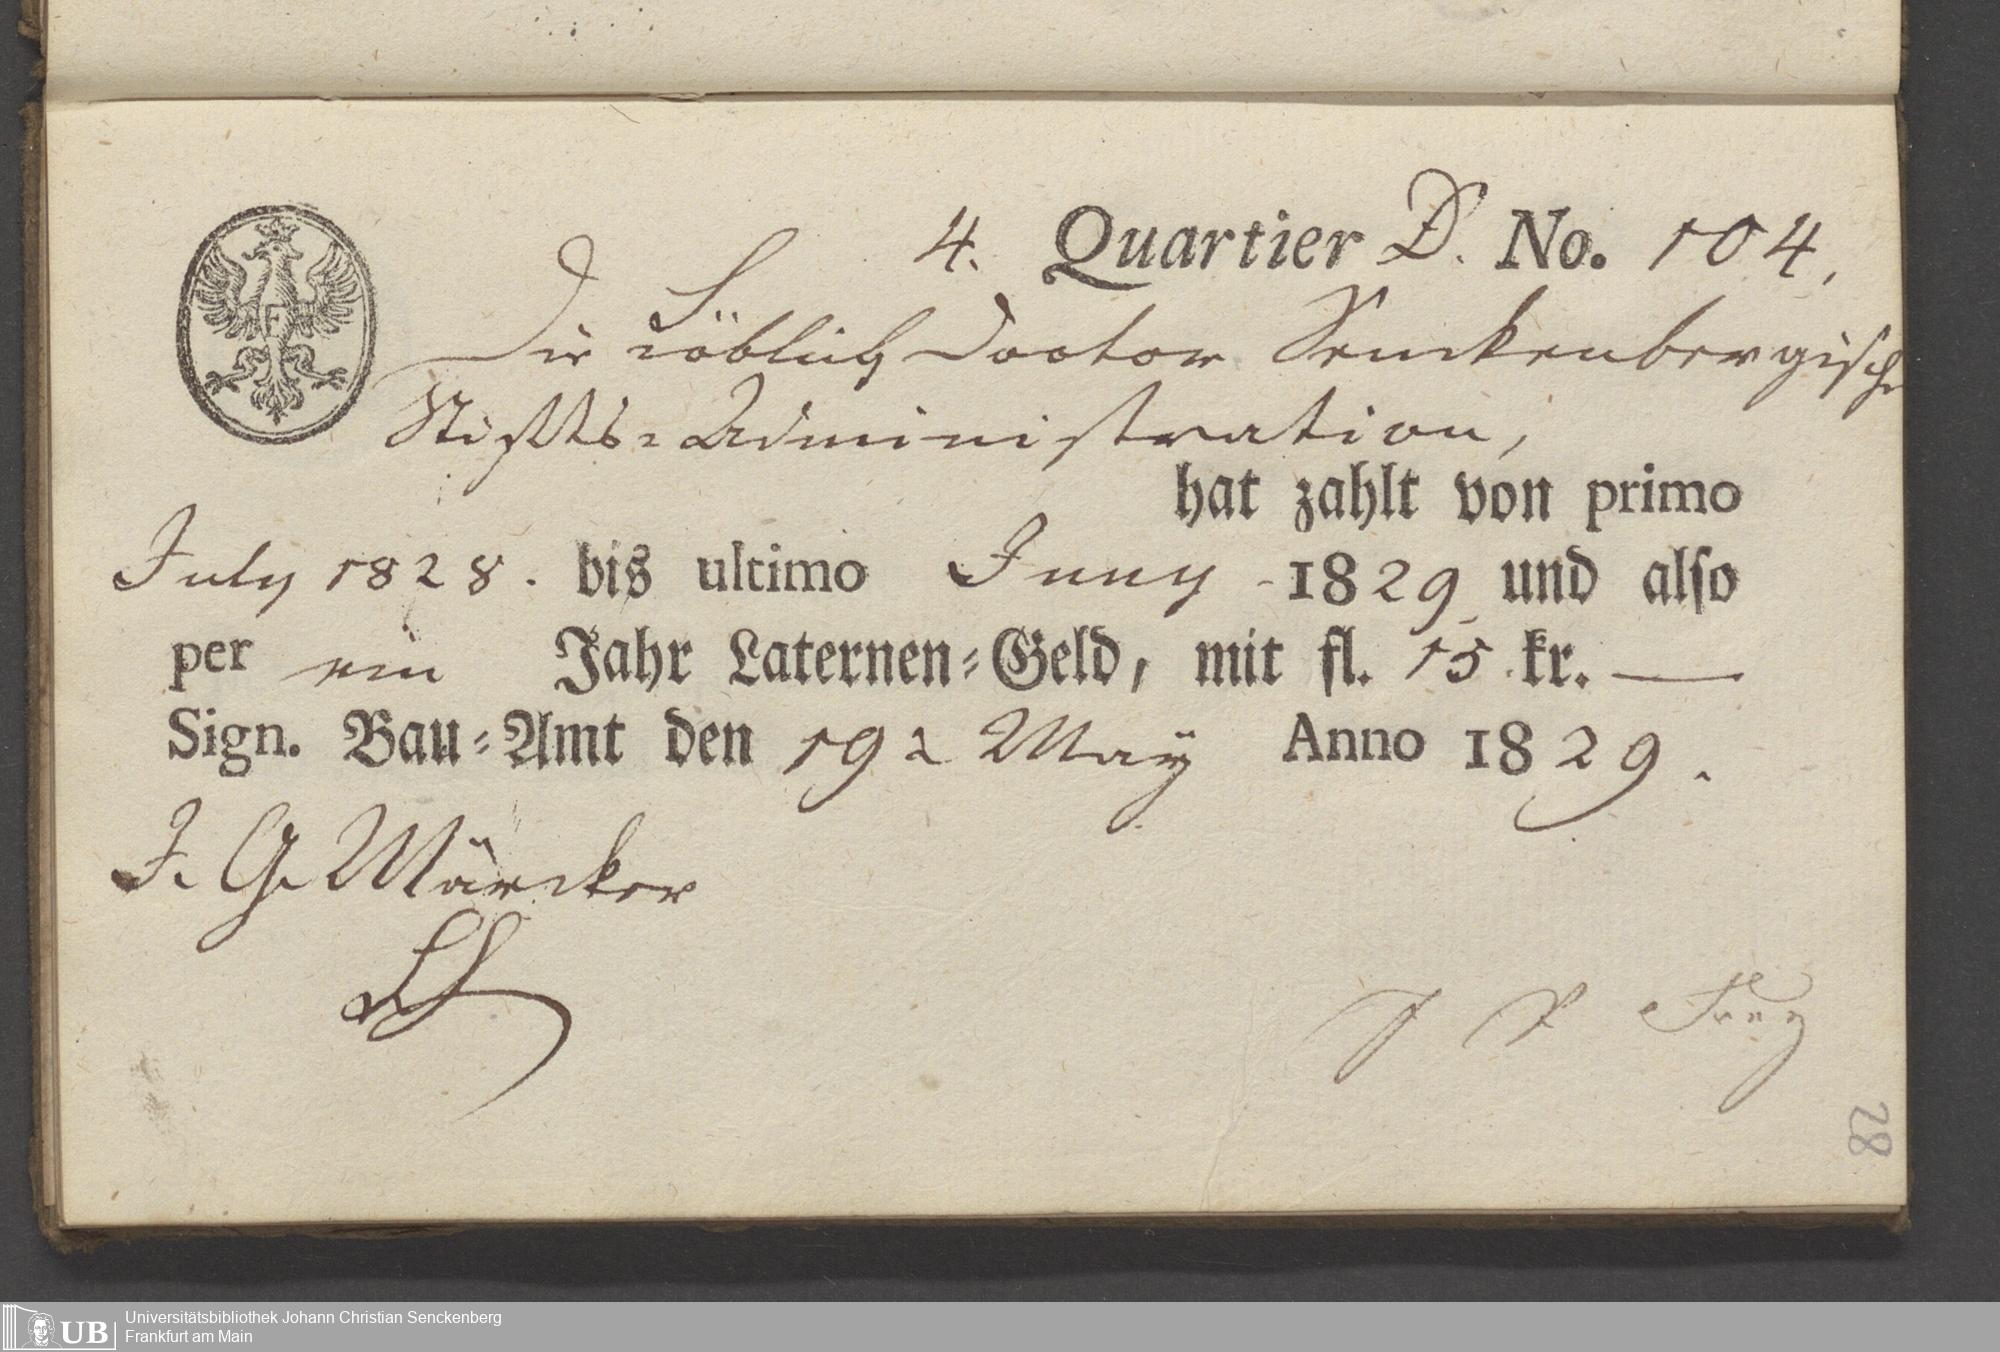 4. Quartier D. No. 104.
Die Löblich Doctor Senckenbergische
Stiftts=Administration,
hat zahlt von primo
July 1828. bis ultimo Juny 1829 und also
per ein Jahr Laternen=Geld, mit fl. 15 kr. —
Sign. Bau=Amt den 19 May Anno 1829.
J. G. Märcker
Frey
28
UB
Universitätsbibliothek Johann Christian Senckenberg
Frankfurt am Main